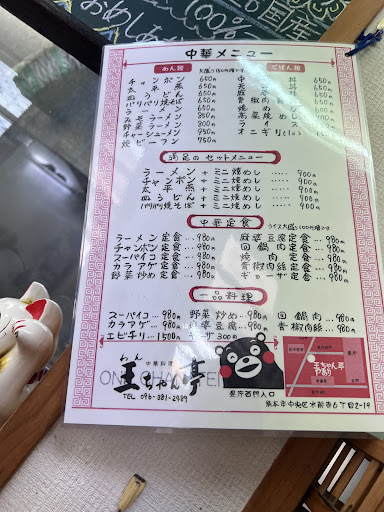 100%
国産
中華メニュー
めん類 大盛り150円増 ごはん類
チャンポン 650円
太平燕 650円
皿うどん 650円
パリパリ焼そば 650円
ラーメン
みそラーメン
野菜ラーメン
チャーシューメン 950円
焼ビーフン 750円
中 丼 650円
天 丼 650円
麻 丼 650円
青椒肉 650円
焼めし
高菜焼めし
ライス
オニギリ(1コ)
満足のセットメニュー
ラーメン + ミニ焼めし ・・・・・ 900円
チャンポン + ミニ焼めし ・・・・・ 900円
太平燕 + ミニ焼めし ・・・・・ 900円
皿うどん + ミニ焼めし ・・・・・ 900円
パリパリ焼そば + ミニ焼めし ・・・・・ 900円
中華定食 ライス大盛り100円増
ラーメン定食 … 980円 麻婆豆腐定食 … 980円
チャンポン定食 … 980円 回鍋肉定食 … 980円
スーパイコ定食 … 980円 焼肉定食 … 980円
カラアゲ定食 … 980円 青椒肉絲定食 … 980円
野菜炒め定食 … 980円 ギョーザ定食 … 980円
一品料理
スーパイコ … 980円 野菜炒め … 980円 回鍋肉 … 980円
カラアゲ … 980円 麻婆豆腐 … 980円 青椒肉絲 … 980円
エビチリ … 1500円 ギョーザ 300円
わん
中華料理
王ちゃん亭
TEL 096-381-2489
県庁西門入口
王ちゃん亭
熊本市中央区水前寺6丁目2-19